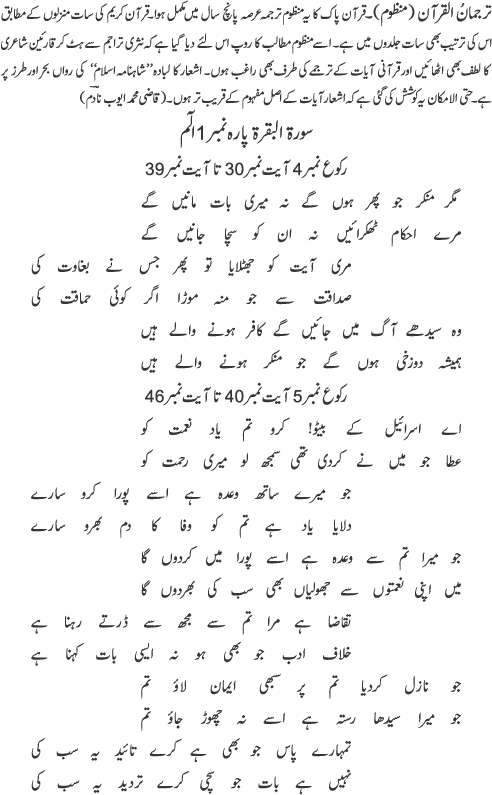 ترجمانُ القرآن (منظوم)۔ قرآن پاک کا یہ منظوم ترجمہ عرصہ پانچ سال میں مکمل ہوا۔ قرآن کریم کی سات منزلوں کے مطابق
اس کی ترتیب بھی سات جلدوں میں ہے۔ اسے منظوم مطالب کا روپ اس لئے دیا گیا ہے کہ نثری تراجم سے ہٹ کر قارئین شاعری
کا لطف بھی اٹھائیں اور قرآنی آیات کے ترجمے کی طرف بھی راغب ہوں۔ اشعار کا لبادہ ’’شاہنامہ اسلام‘‘ کی رواں بحر اور طرز پر
ہے۔ حتی الامکان یہ کوشش کی گئی ہے کہ اشعار آیات کے اصل مفہوم کے قریب تر ہوں۔ (قاضی محمد ایوب نادم)
سورۃ البقرۃ پارہ نمبر 1 الٓم
رکوع نمبر 4 آیت نمبر 30 تا آیت نمبر 39
مگر منکر جو پھر ہوں گے نہ میری بات مانیں گے
مرے احکام ٹھکرائیں نہ ان کو سچا جانیں گے
مری آیت کو جھٹلایا تو پھر جس نے بغاوت کی
صداقت سے جو منہ موڑا اگر کوئی حماقت کی
وہ سیدھے آگ میں جائیں گے کافر ہونے والے ہیں
ہمیشہ دوزخی ہوں گے جو منکر ہونے والے ہیں
رکوع نمبر 5 آیت نمبر 40 تا آیت نمبر 46
اے اسرائیل کے بیٹو! کرو تم یاد نعمت کو
عطا جو میں نے کردی تھی سمجھ لو میری رحمت کو
جو میرے ساتھ وعدہ ہے اسے پورا کرو سارے
دلایا یاد ہے تم کو وفا کا دم بھرو سارے
جو میرا تم سے وعدہ ہے اسے پورا میں کردوں گا
میں اپنی نعمتوں سے جھولیاں بھی سب کی بھردوں گا
تقاضا ہے مرا تم سے مجھ سے ڈرتے رہنا ہے
خلاف ادب جو بھی ہو نہ ایسی بات کہنا ہے
جو نازل کردیا تم پر سبھی ایمان لاؤ تم
جو میرا سیدھا رستہ ہے اسے نہ چھوڑ جاؤ تم
تمہارے پاس جو بھی ہے کرے تائید یہ سب کی
نہیں ہے بات جو سچی کرے تردید یہ سب کی